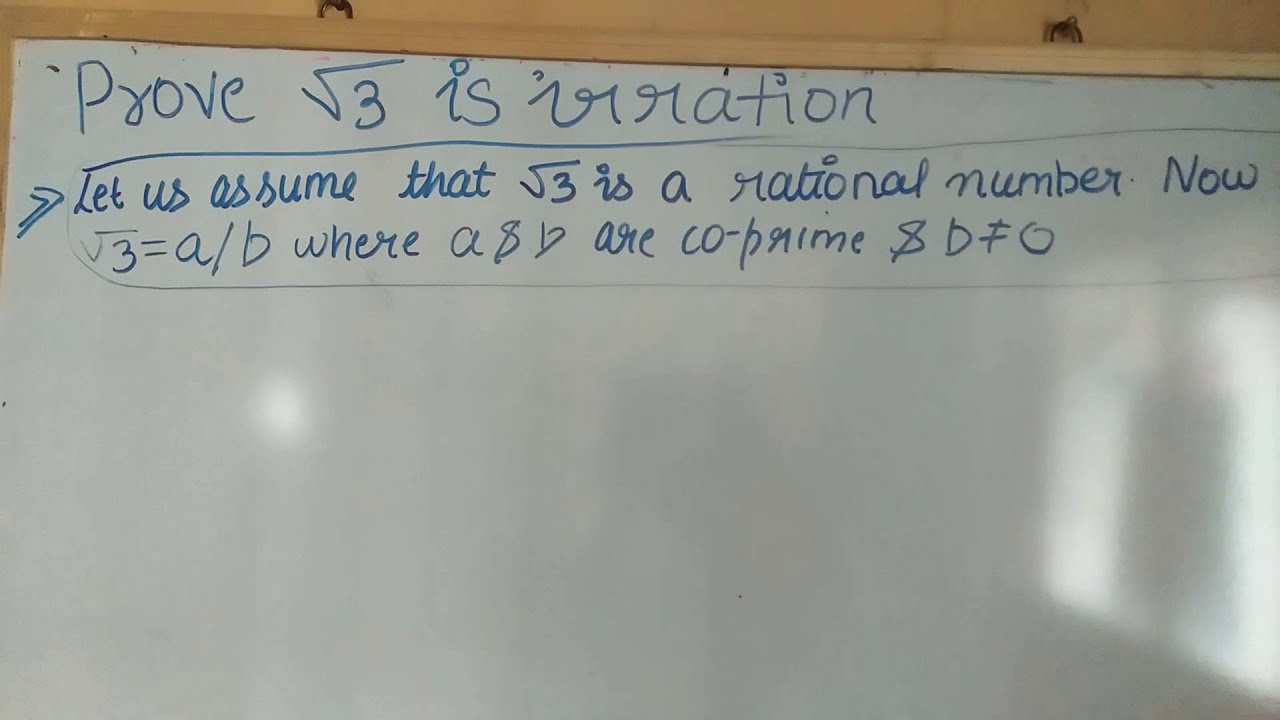 Prove √3 is irration
⇒ Let us assume that √3 is a rational number. Now
√3 = a/b where a & b are co-prime & b ≠ 0